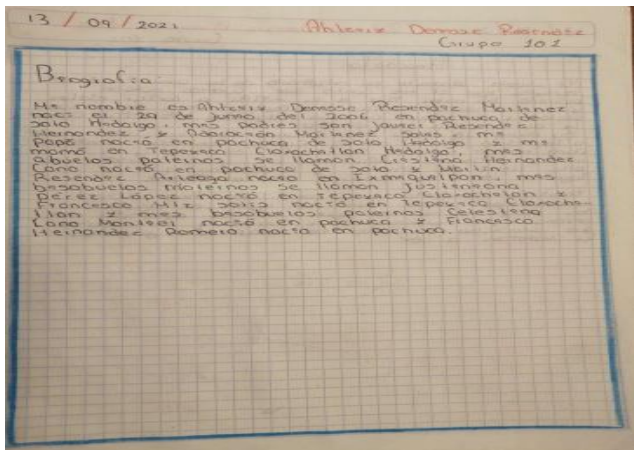 13 / 09 / 2021
Grupo 101
Biografia
Mi nombre es Ahteriz Denisse Resendiz Martinez
naci el 29 de Junio del 2006 en pachuca de
soto Hidalgo, mis padres son Javier Resendiz
Hernandez y Asención Martinez Solis mi
papá nació en pachuca de soto Hidalgo y mi
mamá en Tepexaco Cloxochitlan Hidalgo, mis
abuelos paternos se llaman Cristina Hernandez
Cano nació en pachuca de soto y Martin
Resendiz Arteaga nació en Ixmiquilpan, mis
bisabuelos maternos se llaman Justiniana
Pérez López nació en Tepexaco Cloxochitlan y
Francisco Mtz Solis nació en Tepexaco Cloxochi-
tlan y mis bisabuelos paternos Celestina
Cano Montiel nació en pachuca y Francisco
Hernandez Romero nació en pachuca.